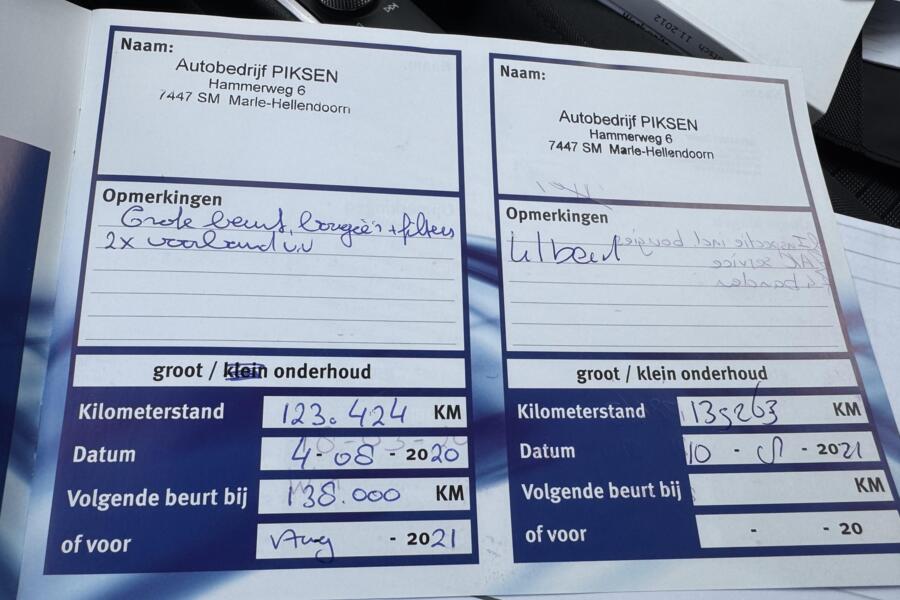 Naam:
Autobedrijf PIKSEN
Hammerweg 6
7447 SM Marle-Hellendoorn
Opmerkingen
Grote beurt, bougie's + filters
2x voorband v.v
groot / klein onderhoud
Kilometerstand 123.424 KM
Datum 4-08-2020
Volgende beurt bij 138.000 KM
of voor Aug -2021
Naam:
Autobedrijf PIKSEN
Hammerweg 6
7447 SM Marle-Hellendoorn
Opmerkingen
groot / klein onderhoud
Kilometerstand KM
Datum 10 - - 2021
Volgende beurt bij KM
of voor - - 20
11 2012